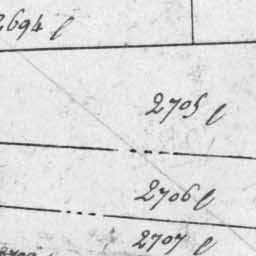 2694 f
2705 f
2706 f
2707 f